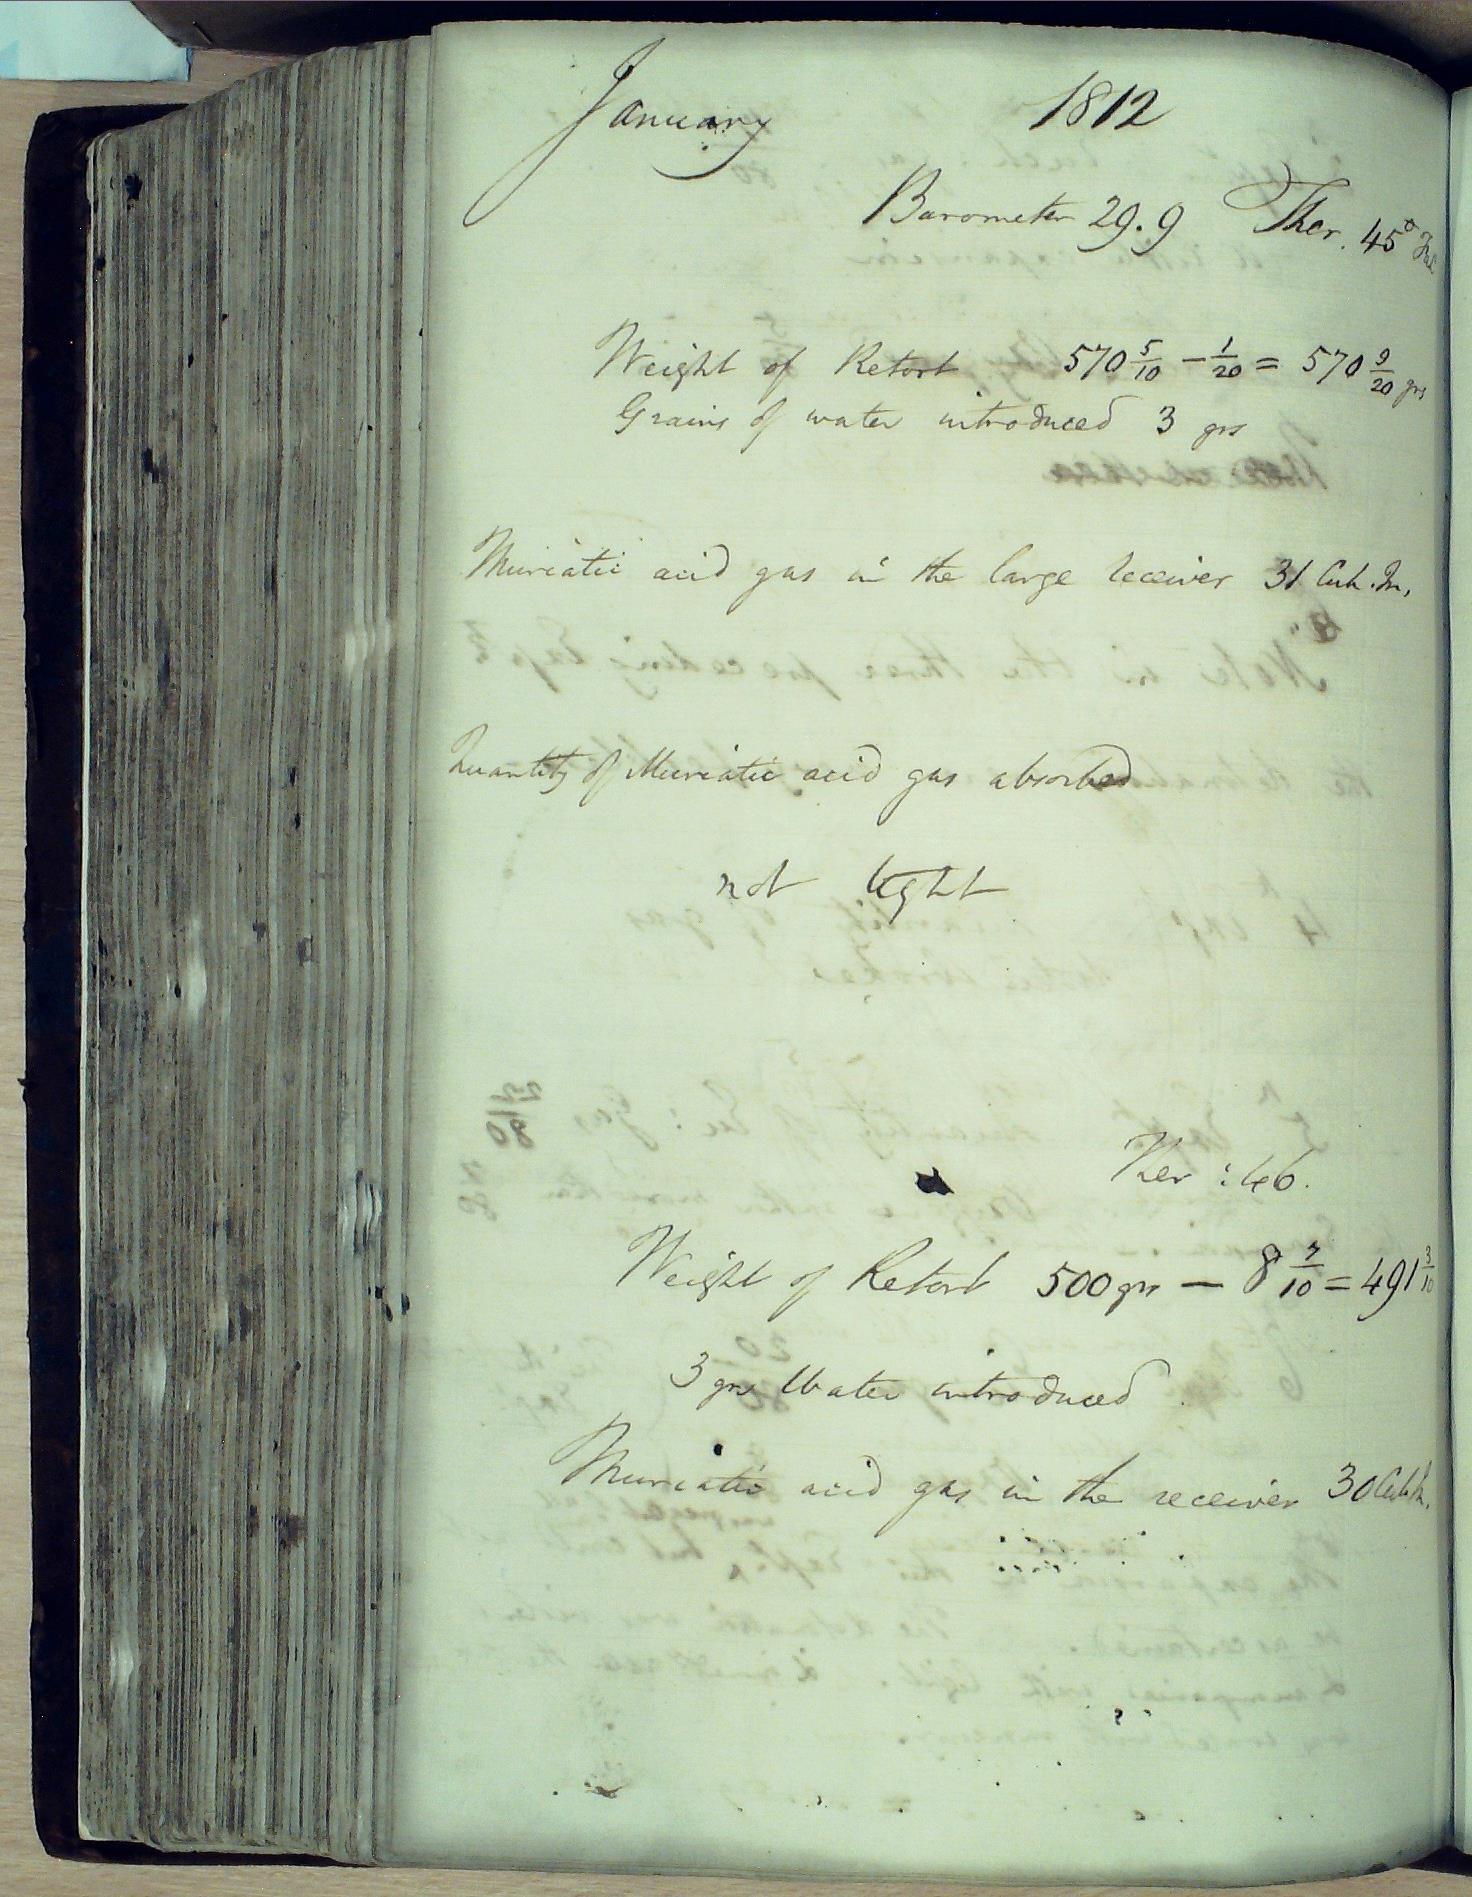 January 1812
Barometer 29.9 Ther. 45° Fah
Weight of Retort 570 5/10 - 1/20 = 570 9/20 grs
Grains of water introduced 3 grs
Muriatic acid gas in the large receiver 31 Cub. In.
Quantity of Muriatic acid gas absorbed
not tight
Ther : 46.
Weight of Retort 500 grs - 8 7/10 = 491 3/10
3 grs Water introduced
Muriatic acid gas in the receiver 30 Cub In.